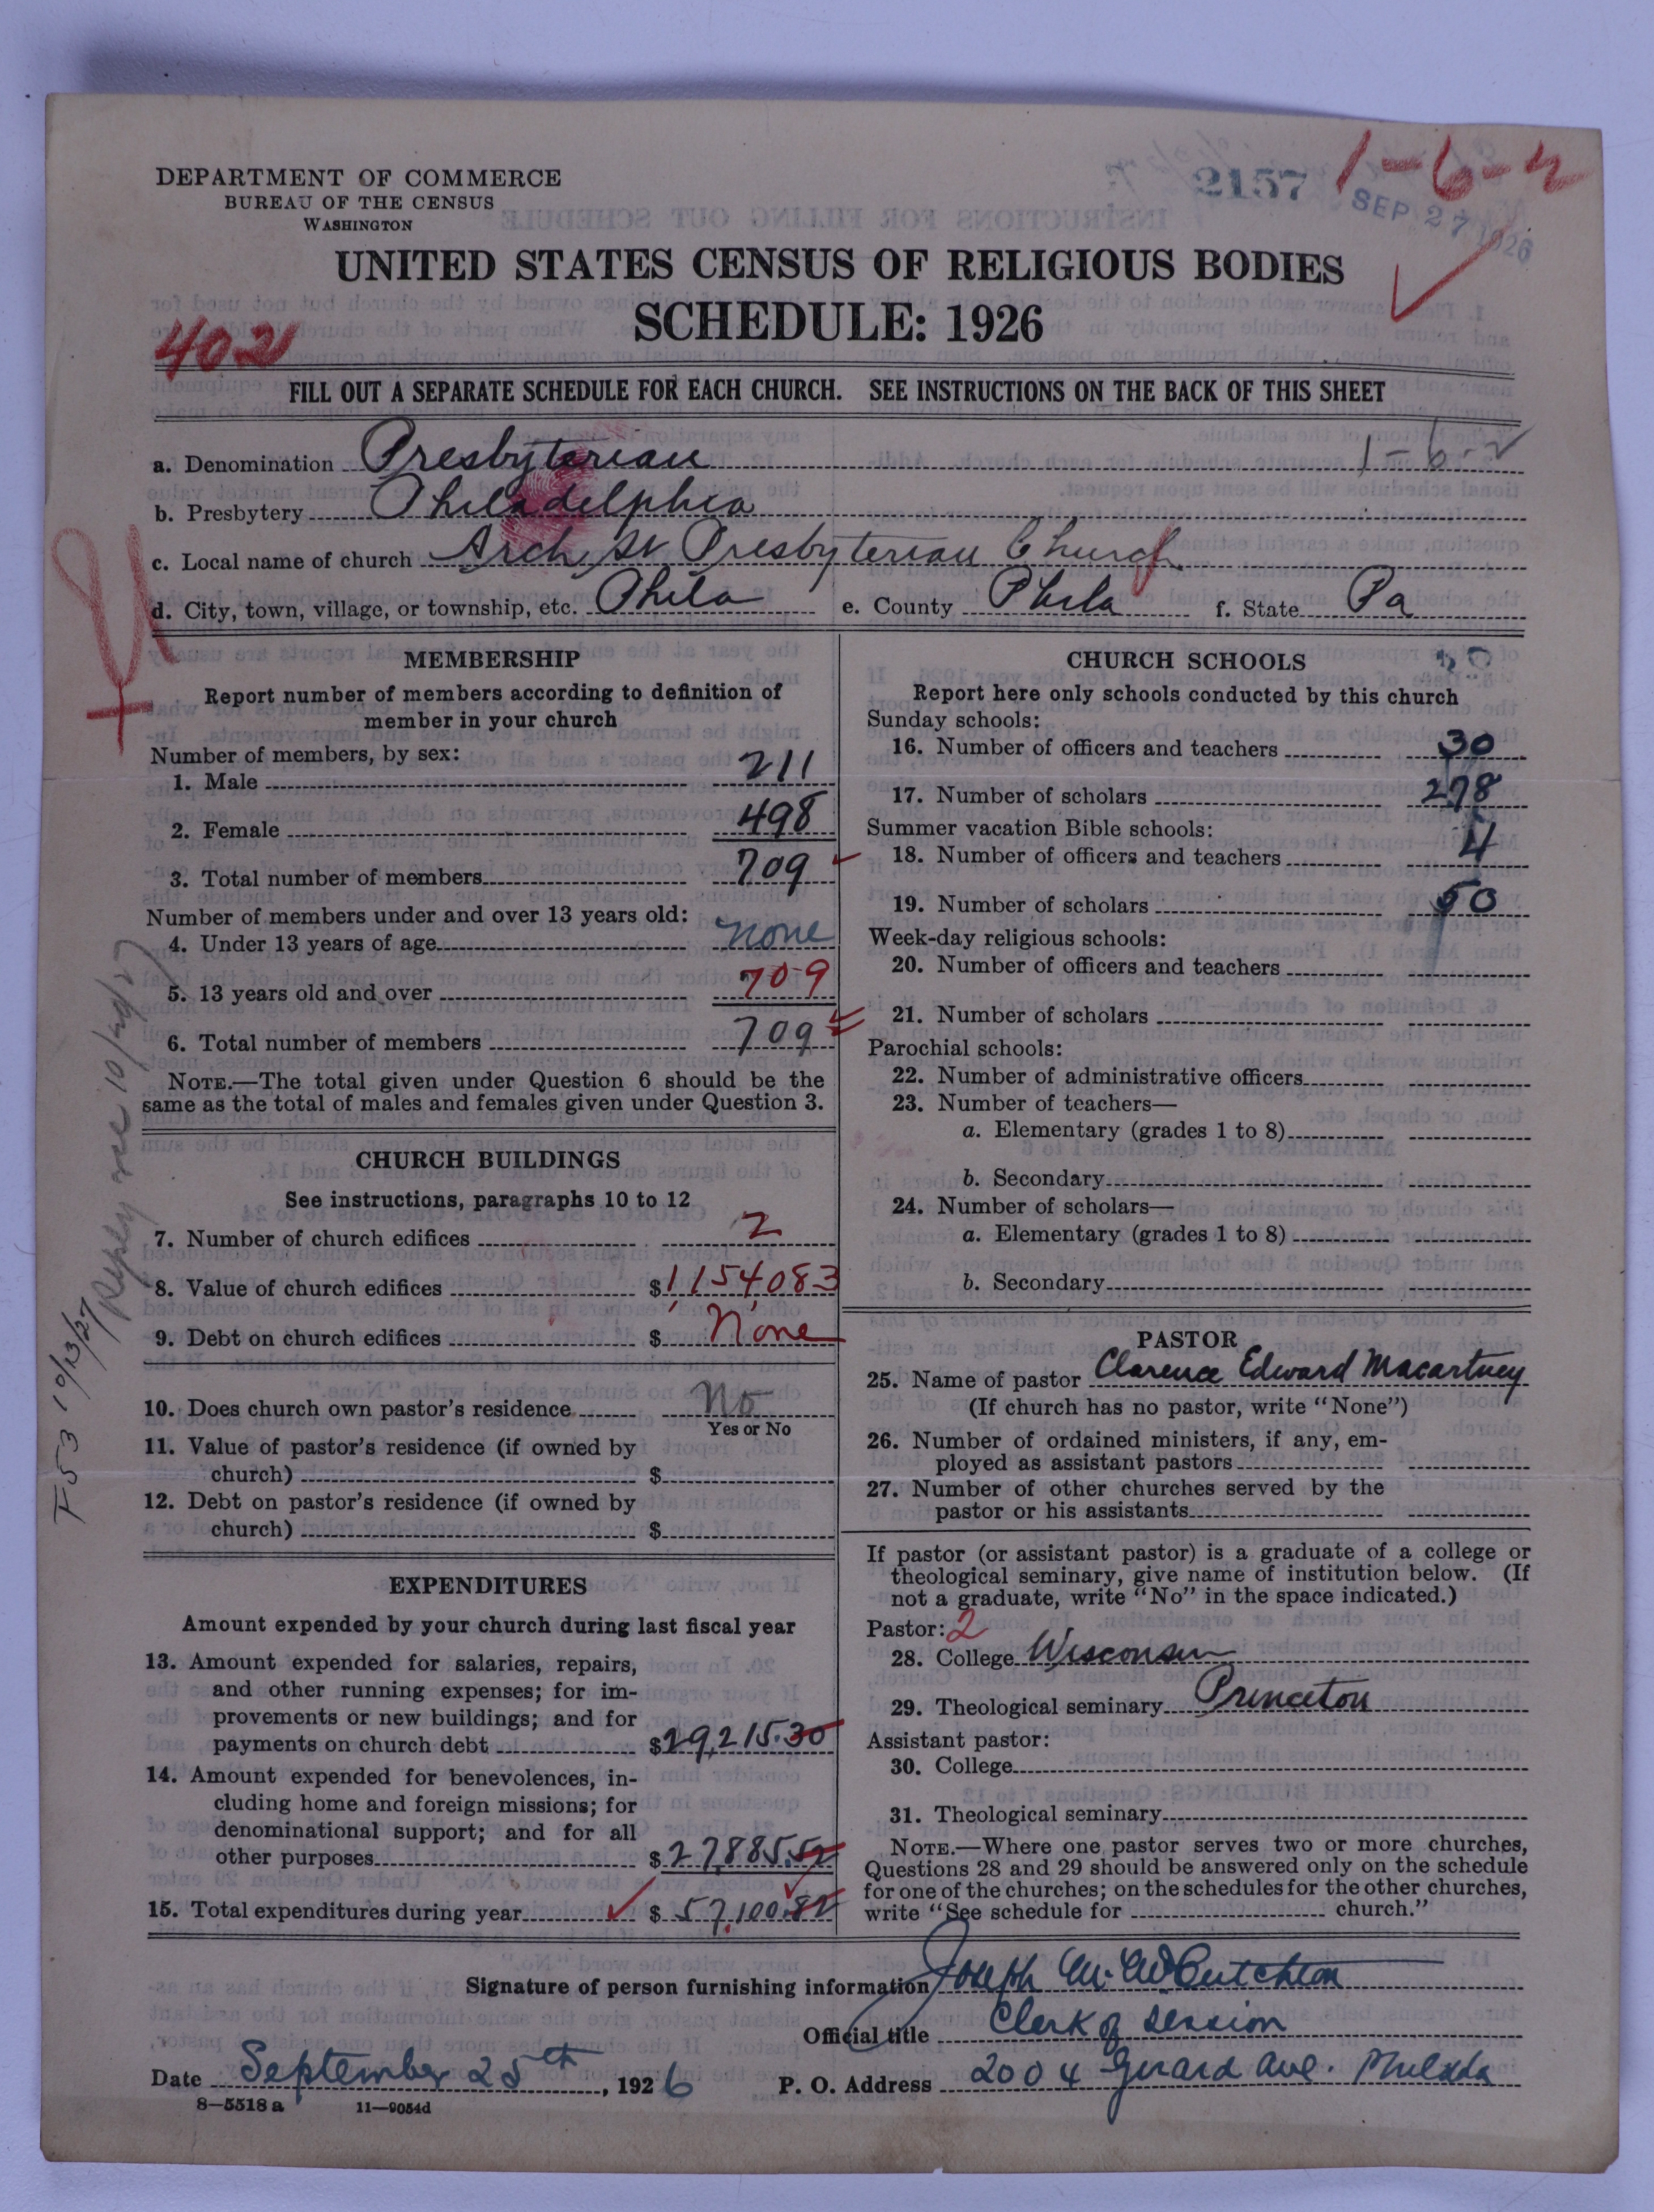 DEPARTMENT OF COMMERCE
BUREAU OF THE CENSUS
WASHINGTON
2157
1-6-2
SEP 27 1926
UNITED STATES CENSUS OF RELIGIOUS BODIES
SCHEDULE: 1926
402
FILL OUT A SEPARATE SCHEDULE FOR EACH CHURCH. SEE INSTRUCTIONS ON THE BACK OF THIS SHEET
a. Denomination Presbyterian 1-6-2
b. Presbytery Philadelphia
c. Local name of church Arch St Presbyterian Church
d. City, town, village, or township, etc. Phila e. County Phila f. State Pa
MEMBERSHIP
Report number of members according to definition of
member in your church
Number of members, by sex:
1. Male 211
2. Female 498
3. Total number of members 709
Number of members under and over 13 years old:
4. Under 13 years of age none
5. 13 years old and over 709
6. Total number of members 709
NOTE.—The total given under Question 6 should be the
same as the total of males and females given under Question 3.
CHURCH BUILDINGS
See instructions, paragraphs 10 to 12
7. Number of church edifices 2
8. Value of church edifices $1,154,083
9. Debt on church edifices $ None
10. Does church own pastor's residence No
Yes or No
11. Value of pastor's residence (if owned by
church) $
12. Debt on pastor's residence (if owned by
church) $
EXPENDITURES
Amount expended by your church during last fiscal year
13. Amount expended for salaries, repairs,
and other running expenses; for im-
provements or new buildings; and for
payments on church debt $29,215.30
14. Amount expended for benevolences, in-
cluding home and foreign missions; for
denominational support; and for all
other purposes $27,885.52
15. Total expenditures during year $57,100.82
CHURCH SCHOOLS
Report here only schools conducted by this church
Sunday schools:
16. Number of officers and teachers 30
17. Number of scholars 278
Summer vacation Bible schools:
18. Number of officers and teachers 4
19. Number of scholars 50
Week-day religious schools:
20. Number of officers and teachers
21. Number of scholars
Parochial schools:
22. Number of administrative officers
23. Number of teachers—
a. Elementary (grades 1 to 8)
b. Secondary
24. Number of scholars—
a. Elementary (grades 1 to 8)
b. Secondary
PASTOR
25. Name of pastor Clarence Edward Macartney
(If church has no pastor, write "None")
26. Number of ordained ministers, if any, em-
ployed as assistant pastors
27. Number of other churches served by the
pastor or his assistants
If pastor (or assistant pastor) is a graduate of a college or
theological seminary, give name of institution below. (If
not a graduate, write "No" in the space indicated.)
Pastor: 2
28. College Wisconsin
29. Theological seminary Princeton
Assistant pastor:
30. College
31. Theological seminary
NOTE.—Where one pastor serves two or more churches,
Questions 28 and 29 should be answered only on the schedule
for one of the churches; on the schedules for the other churches,
write "See schedule for church."
Signature of person furnishing information Joseph M. McCutcheon
Official title Clerk of Session
Date September 25th, 1926 P. O. Address 2004 Girard Ave. Philada
8—5518 a 11—9054d
F53 10/13/27
Reply 10/29/27